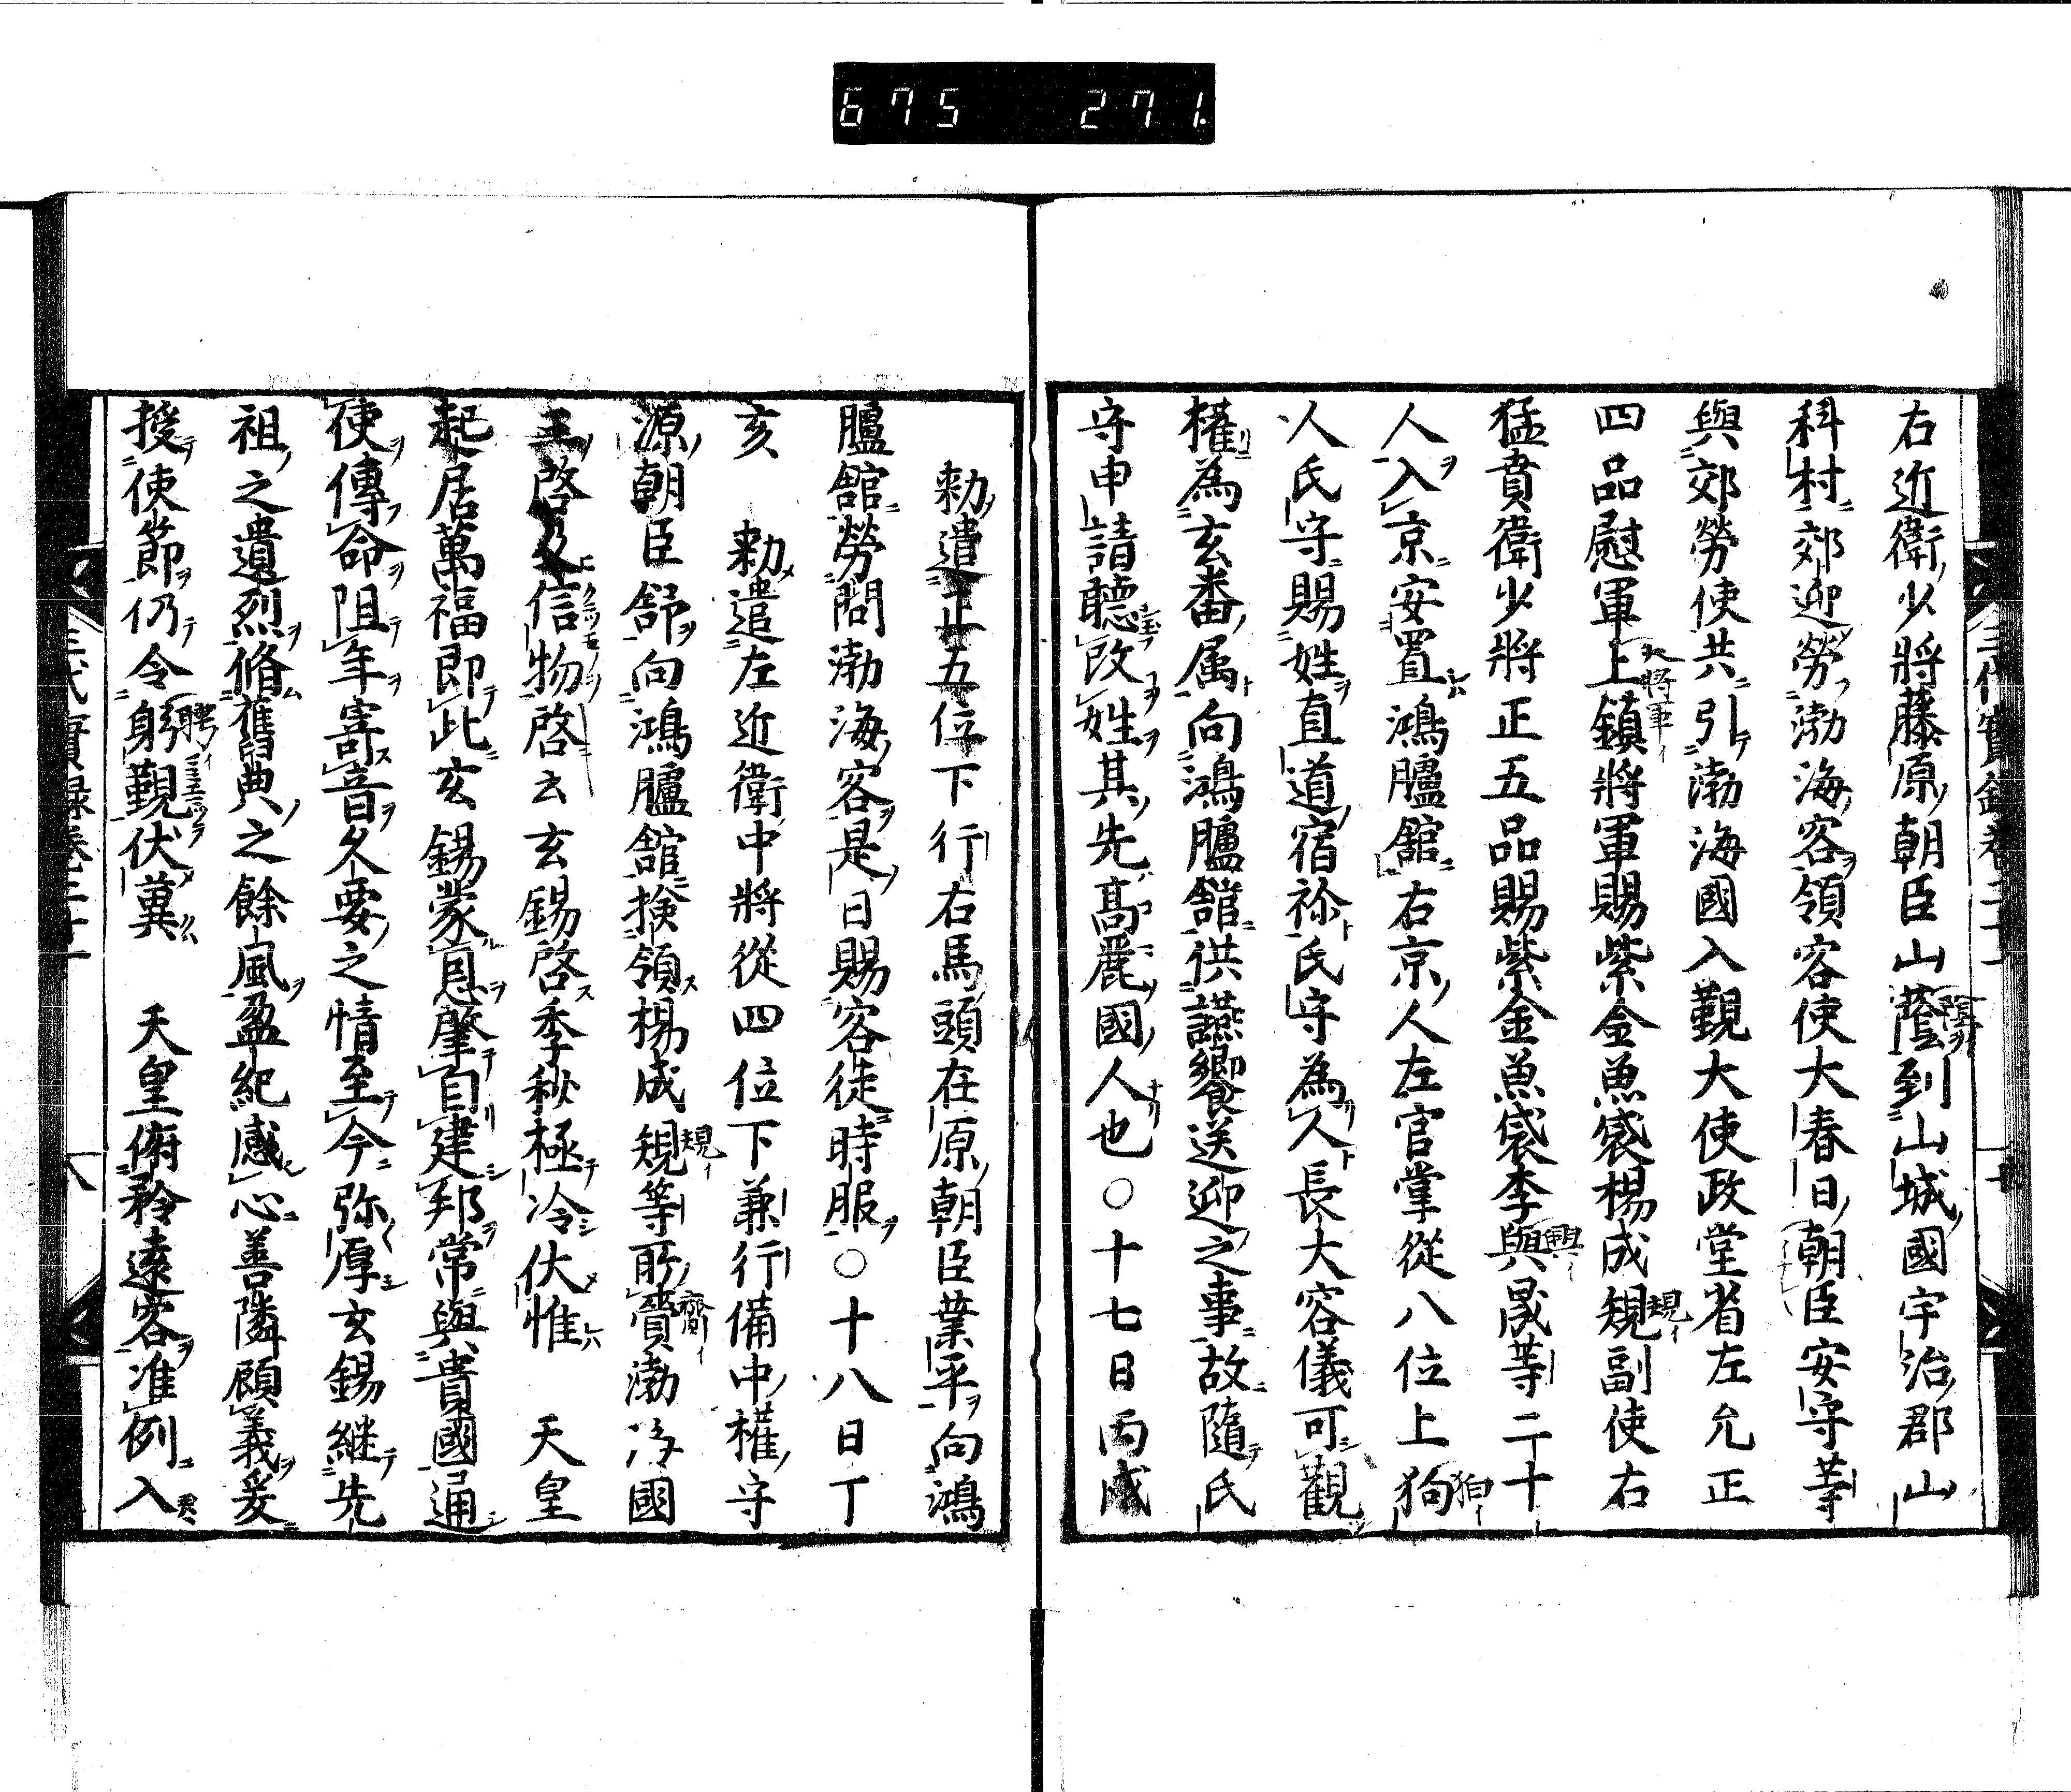 675 271.
右近衛少將藤原朝臣山蔭到山城國宇治郡山
科村郊迎勞渤海客領客使大春日朝臣安守等
與郊勞使共引渤海國入覲大使政堂省左允正
四品慰軍上鎮將軍賜紫金魚袋楊成規副使右
猛賁衛少將正五品賜紫金魚袋李與晟等二十
人入京安置鴻臚舘右京人左官掌從八位上狗
人氏守賜姓直道宿祢氏守為人長大容儀可觀
權為玄番属向鴻臚舘供讌饗送迎之事故隨氏
守申請聽改姓其先高麗國人也○十七日丙戌
勑遣正五位下行右馬頭在原朝臣業平向鴻
臚舘勞問渤海客是日賜客徒時服○十八日丁
亥 勑遣左近衛中將從四位下兼行備中權守
源朝臣舒向鴻臚舘撿領楊成規等所賷渤海國
王啓及信物啓云玄錫啓季秋極冷伏惟 天皇
起居萬福即此玄錫蒙恩肇自建邦常與貴國通
使傳命阻年寄音久要之情至今弥厚玄錫継先
祖之遺烈脩舊典之餘風盈紀感心善隣顧義爰
授使節仍令躬覲伏冀 天皇俯矜遠客准例入
三代實録卷二十一
八